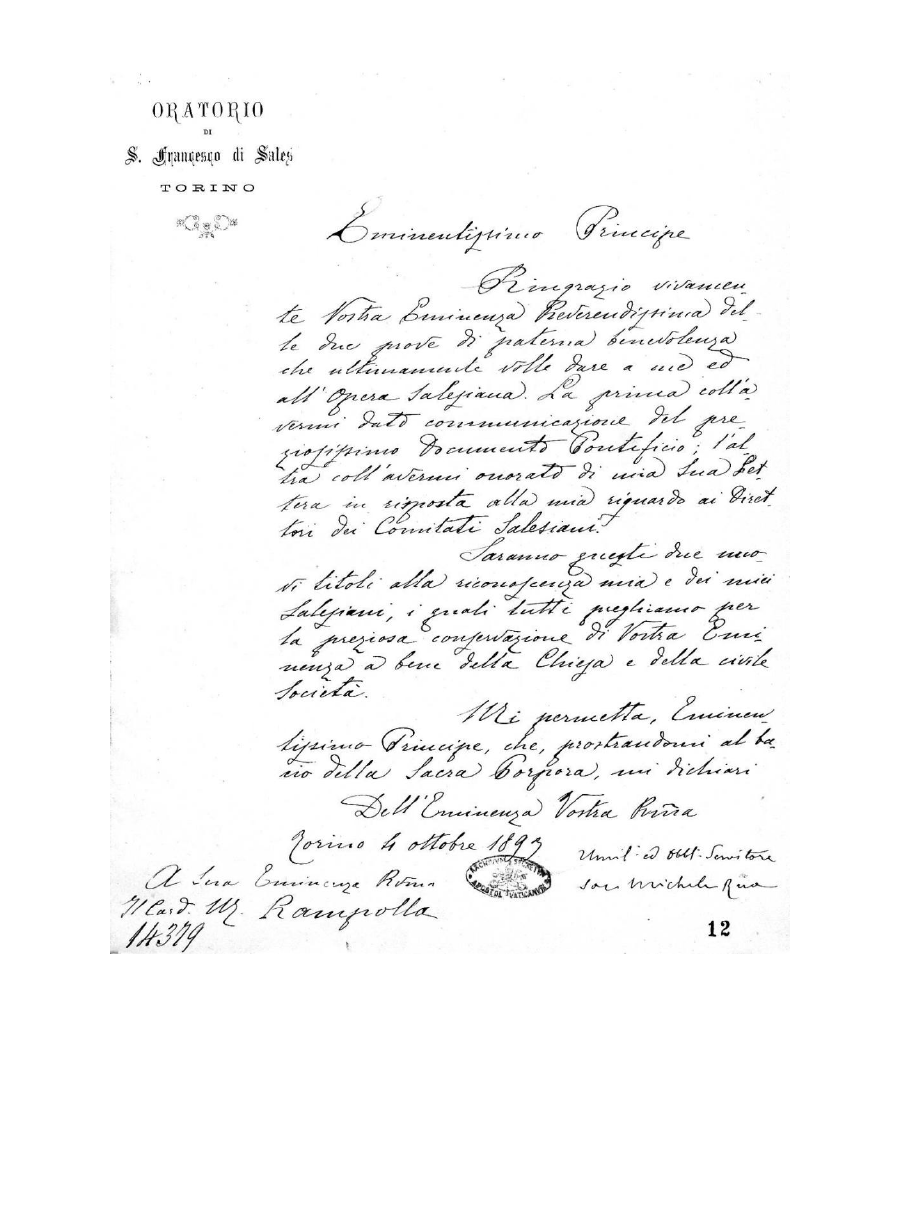 ORATORIO
DI
S. Francesco di Sales
TORINO
Eminentissimo Principe
Ringrazio vivamen-
te Vostra Eminenza Reverendissima del-
le due prove di paterna benevolenza
che ultimamente volle dare a me ed
all'Opera Salesiana. La prima coll'a
vermi dato communicazione del pre-
ziosissimo Documento Pontificio; l'al-
tra coll'avermi onorato di una Sua Let-
tera in risposta alla mia riguardo ai Diret-
tori dei Comitati Salesiani.
Saranno questi due nuo-
vi titoli alla riconoscenza mia e dei miei
Salesiani, i quali tutti preghiamo per
la preziosa conservazione di Vostra Emi-
nenza a bene della Chiesa e della civile
Società.
Mi permetta, Eminen-
tissimo Principe, che, prostrandomi al ba-
cio della Sacra Porpora, mi dichiari
Dell'Eminenza Vostra Rma
Torino 4 ottobre 1897
Umil. ed Obb. Servitore
Sac. Michele Rua
ARCHIVUM SECRETUM
APOSTOL. VATICANUM
A Sua Eminenza Roma
Il Card. M. Rampolla
14379
12